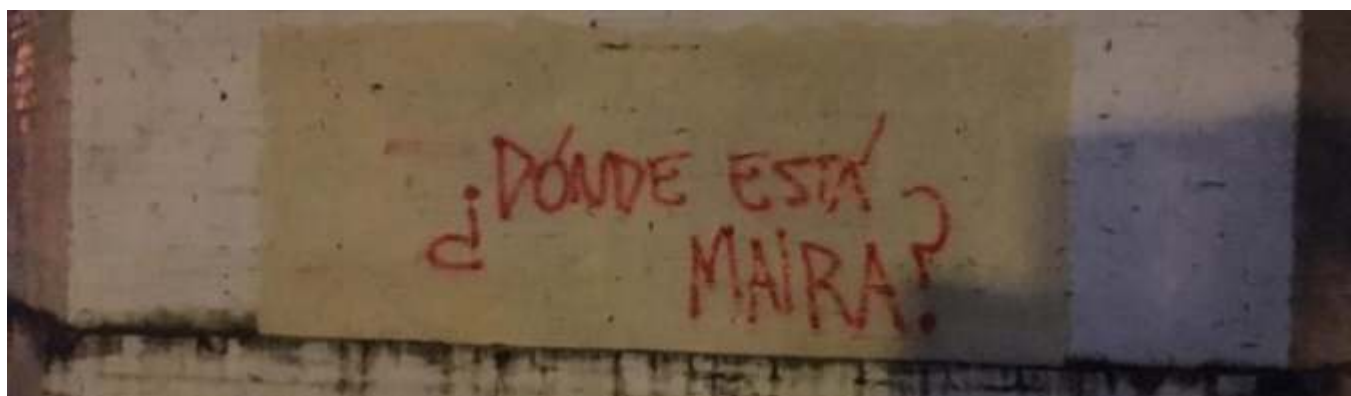 ¿DÓNDE ESTÁ
MAIRA?